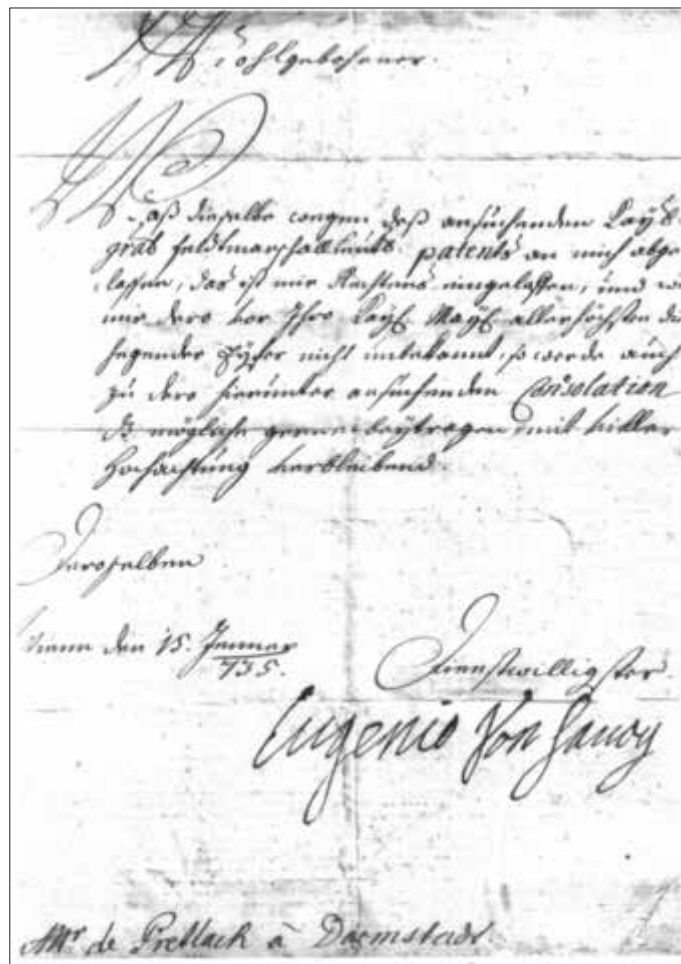 Wohlgebohrner.
Waß dieselbe wegen deß ansuchenden Kays.
patents an mich abge
lassen, das ist mir Rechtens eingeloffen, und
mir dero vor Ihro Kayl. Mayt. allerhöchsten
hegender Eyfer nicht unbekannt, so werde auch
zu dero hierunter ansuchenden Consolation
mögliche gerne beytragen, mit viller
Hochachtung verbleibend.
Deroselben
Wienn den 15. Jenner
735.
Dienstwilligster.
Eugenio Von Savoy
Mr. de Pretlack à Darmstadt